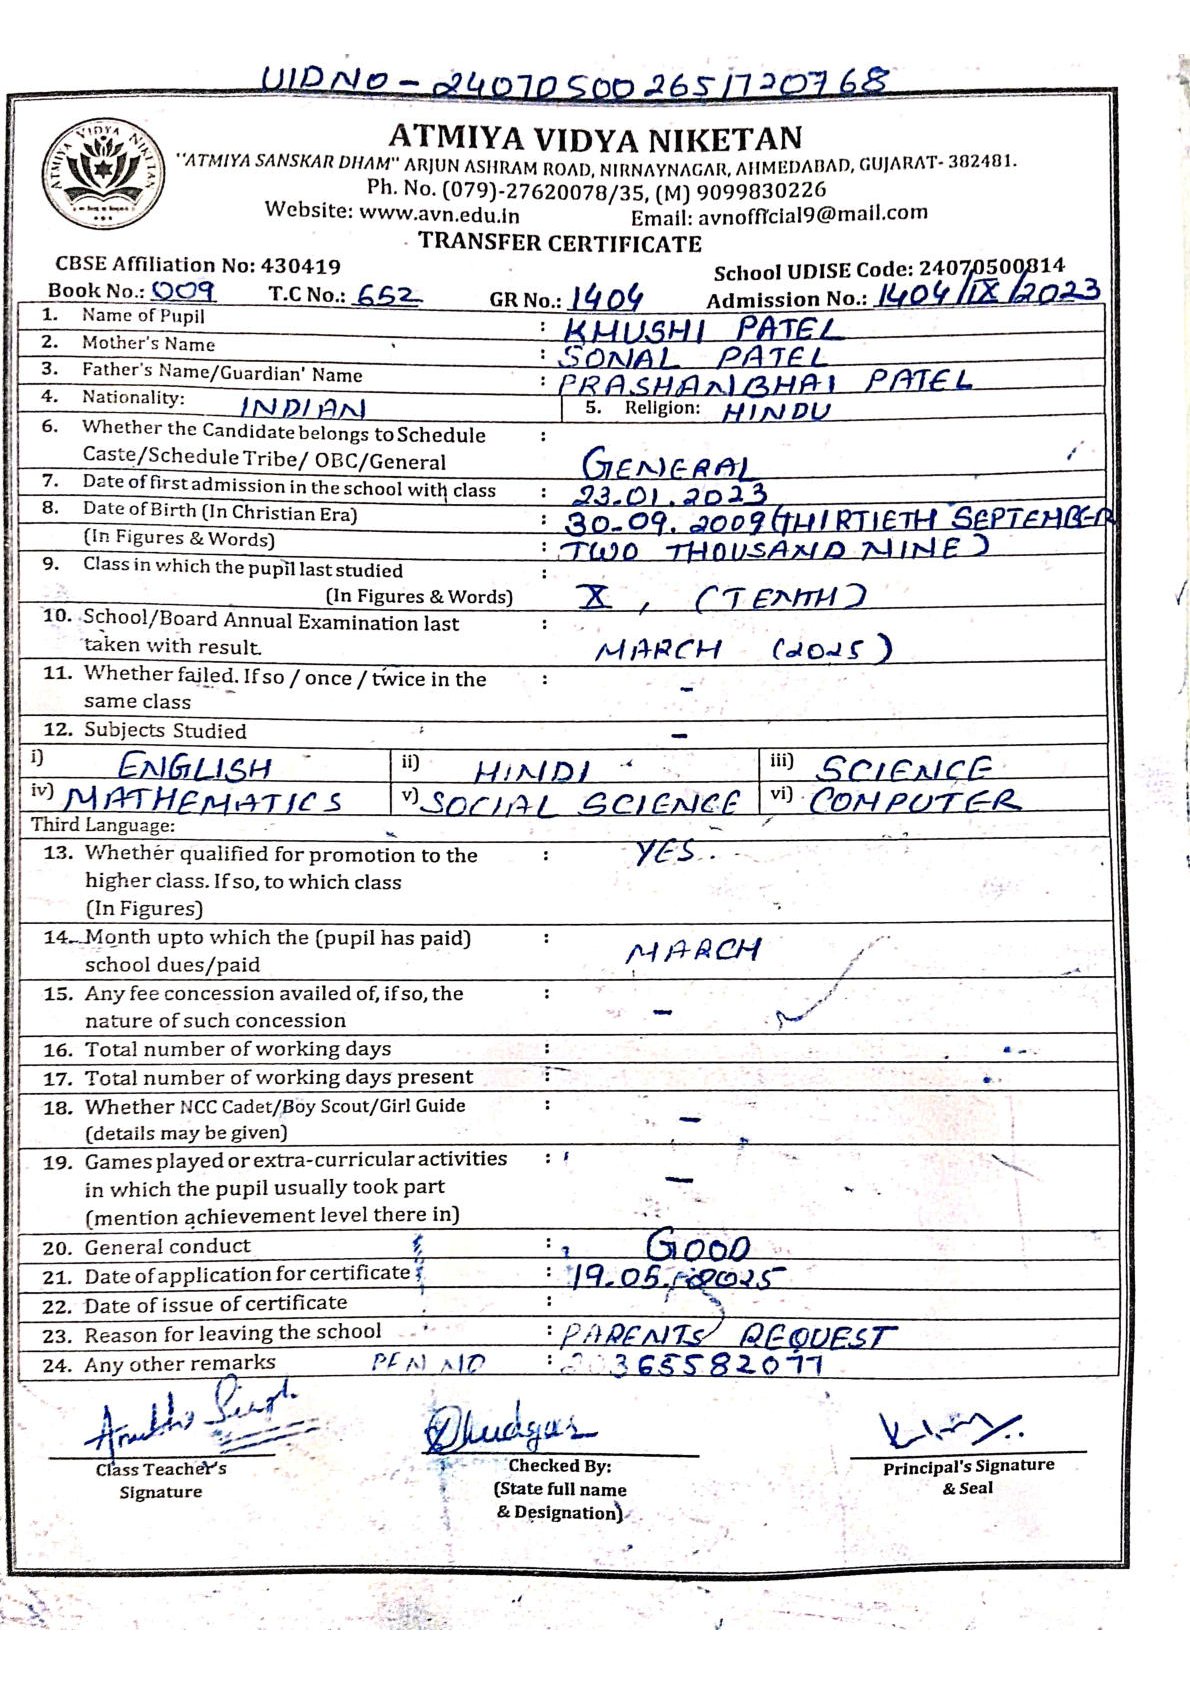 UIDNO - 240705002651720768
ATMIYA VIDYA NIKETAN
ATMIYA VIDYA NIKETAN
"ATMIYA SANSKAR DHAM" ARJUN ASHRAM ROAD, NIRNAYNAGAR, AHMEDABAD, GUJARAT- 382481.
Ph. No. (079)-27620078/35, (M) 9099830226
Website: www.avn.edu.in Email: avnofficial9@mail.com
TRANSFER CERTIFICATE
CBSE Affiliation No: 430419 School UDISE Code: 24070500814
Book No.: 009 T.C No.: 652 GR No.: 1404 Admission No.: 1404/IX/2023
1. Name of Pupil : KHUSHI PATEL
2. Mother's Name : SONAL PATEL
3. Father's Name/Guardian' Name : PRASHANBHAI PATEL
4. Nationality: INDIAN 5. Religion: HINDU
6. Whether the Candidate belongs to Schedule :
Caste/Schedule Tribe/ OBC/General GENERAL
7. Date of first admission in the school with class : 23.01.2023
8. Date of Birth (In Christian Era) : 30-09.2009 (THIRTIETH SEPTEMBER
(In Figures & Words) : TWO THOUSAND NINE)
9. Class in which the pupil last studied :
(In Figures & Words) X, (TENTH)
10. School/Board Annual Examination last :
taken with result. MARCH (2025)
11. Whether failed. If so / once / twice in the : -
same class
12. Subjects Studied -
i) ENGLISH ii) HINDI iii) SCIENCE
iv) MATHEMATICS v) SOCIAL SCIENCE vi) COMPUTER
Third Language:
13. Whether qualified for promotion to the : YES.
higher class. If so, to which class
(In Figures)
14. Month upto which the (pupil has paid) : MARCH
school dues/paid
15. Any fee concession availed of, if so, the :
nature of such concession -
16. Total number of working days :
17. Total number of working days present :
18. Whether NCC Cadet/Boy Scout/Girl Guide : -
(details may be given)
19. Games played or extra-curricular activities :
in which the pupil usually took part -
(mention achievement level there in)
20. General conduct : GOOD
21. Date of application for certificate : 19.05.2025
22. Date of issue of certificate :
23. Reason for leaving the school : PARENTS REQUEST
24. Any other remarks PEN NO :
Class Teacher's
Signature
Checked By:
(State full name
& Designation)
Principal's Signature
& Seal